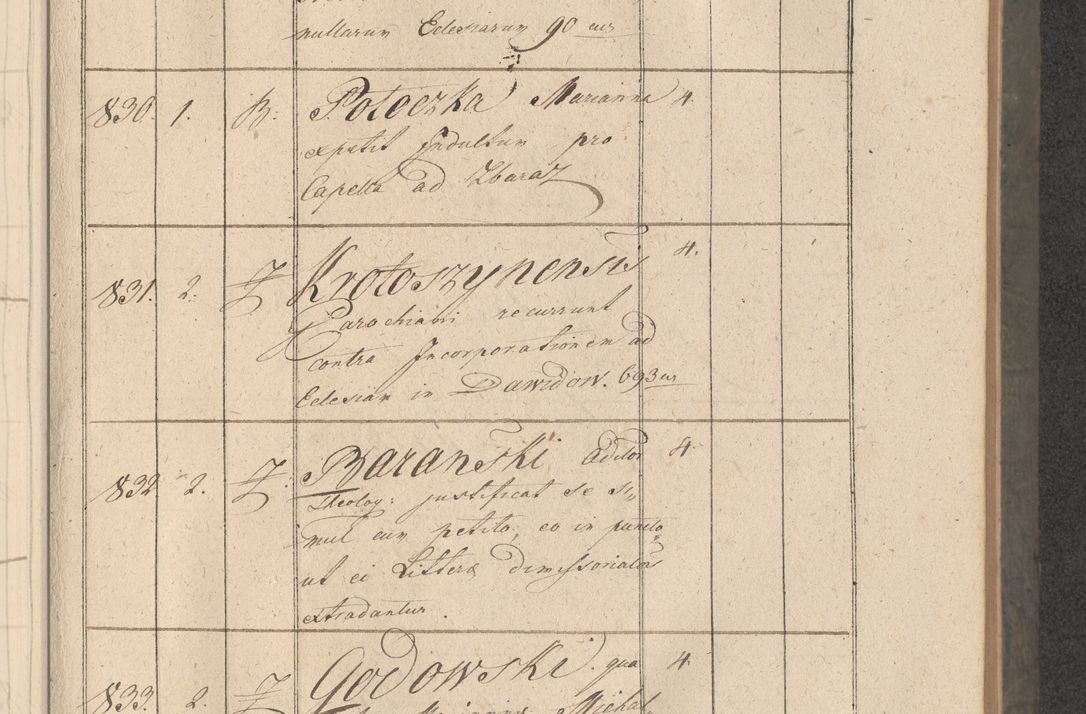 nullarum Eclesiarum 90 eur
830. 1. R: Potoczka Marianna 4.
expetit Indultum pro
Capella ad Zbaraz
831. 2. Z Krotoszynensis 4.
Parochiani recurrunt
contra Incorporationem ad
Eclesiam in Dawidow. 693 eur
832 2. Z. Baranski Auditor 4.
Theolog: justificat se si„
mul cum petito, eo in puncto
ut ei Litterae dimissoriales
extradantur.
833. 2. Z Godowski qua 4.
Michal